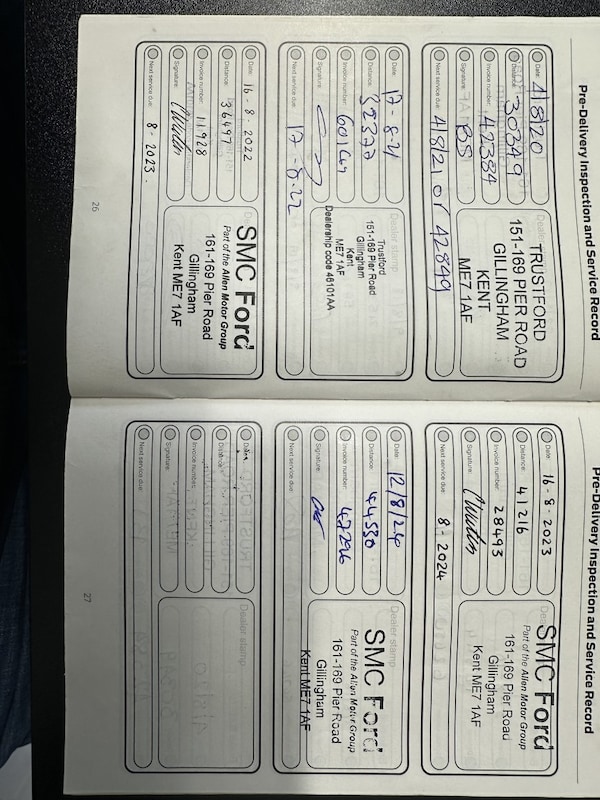 Pre-Delivery Inspection and Service Record
Date: 4/8/20
Distance: 30349
Invoice number: 42384
Signature: BS
Next service due: 4/8/21 or 42849
TRUSTFORD
151-169 PIER ROAD
GILLINGHAM
KENT
ME7 1AF
Date: 17-8-21
Distance:
Invoice number:
Signature:
Next service due: 17-8-22
Dealer stamp
Trustford
151-169 Pier Road
Gillingham
Kent
ME7 1AF
Dealership code 46101AA
Date: 16-8-2022
Distance: 36497
Invoice number: 11928
Signature:
Next service due: 8-2023.
SMC Ford
Part of the Allen Motor Group
161-169 Pier Road
Gillingham
Kent ME7 1AF
26
Pre-Delivery Inspection and Service Record
Date: 16-8-2023
Distance: 41216
Invoice number: 28493
Signature:
Next service due: 8-2024
SMC Ford
Part of the Allen Motor Group
161-169 Pier Road
Gillingham
Kent ME7 1AF
Date: 12/8/24
Distance: 44530
Invoice number: 47296
Signature:
Next service due:
Dealer stamp
SMC Ford
Part of the Allen Motor Group
161-169 Pier Road
Gillingham
Kent ME7 1AF
Date:
Distance:
Invoice number:
Signature:
Next service due:
Dealer stamp
27